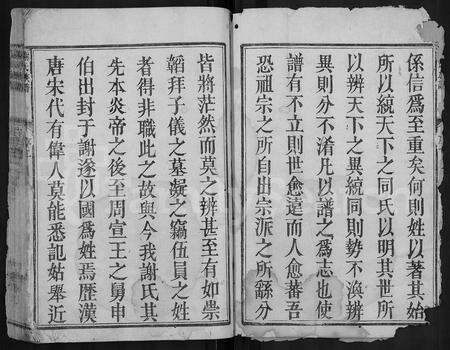 係信爲至重矣何則姓以著其始
所以統天下之同氏以明其世所
以辨天下之異統同則勢不渙辨
異則分不淆凡以譜之爲志也使
譜有不立則世愈遠而人愈蕃吾
恐祖宗之所自出宗派之所繇分
皆將茫然而莫之辨甚至有如崇
韜拜子儀之墓凝之竊伍員之姓
者得非職此之故與今我謝氏其
先本炎帝之後至周宣王之舅申
伯出封于謝遂以國爲姓焉歷漢
唐宋代有偉人莫能悉記姑舉近